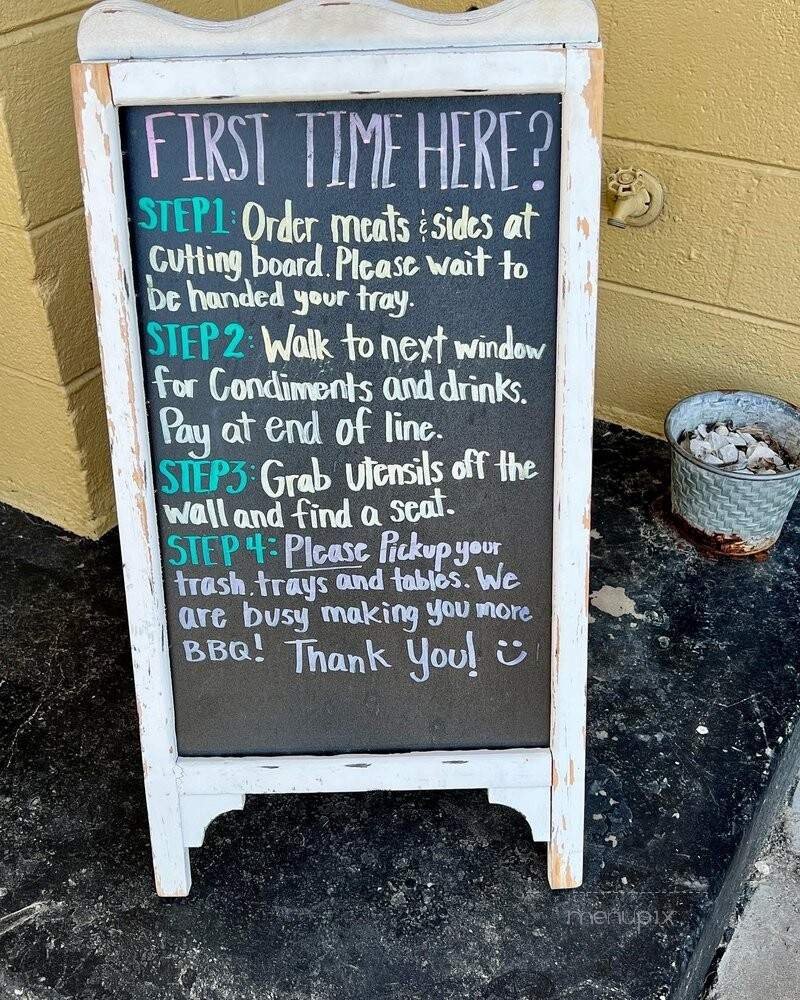 FIRST TIME HERE?
STEP1: Order meats & sides at
cutting board. Please wait to
be handed your tray.
STEP2: Walk to next window
for Condiments and drinks.
Pay at end of line.
STEP3: Grab utensils off the
wall and find a seat.
STEP4: Please Pickup your
trash, trays and tables. We
are busy making you more
BBQ! Thank You!
menupix